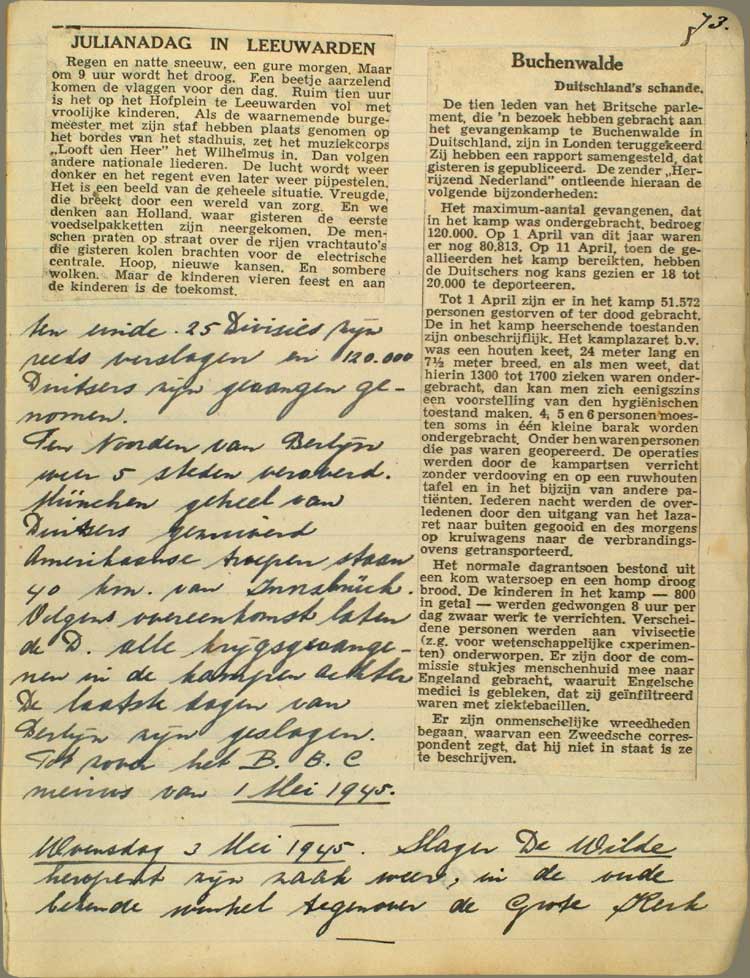 73.
JULIANADAG IN LEEUWARDEN
Regen en natte sneeuw, een gure morgen. Maar
om 9 uur wordt het droog. Een beetje aarzelend
komen de vlaggen voor den dag. Ruim tien uur
is het op het Hofplein te Leeuwarden vol met
vroolijke kinderen. Als de waarnemende burge-
meester met zijn staf hebben plaats genomen op
het bordes van het stadhuis, zet het muziekcorps
„Looft den Heer" het Wilhelmus in. Dan volgen
andere nationale liederen. De lucht wordt weer
donker en het regent even later weer pijpestelen.
Het is een beeld van de geheele situatie. Vreugde,
die breekt door een wereld van zorg. En we
denken aan Holland, waar gisteren de eerste
voedselpakketten zijn neergekomen. De men-
schen praten op straat over de rijen vrachtauto's
die gisteren kolen brachten voor de electrische
centrale. Hoop, nieuwe kansen. En sombere
wolken. Maar de kinderen vieren feest en aan
de kinderen is de toekomst.
ten einde. 25 Divisies zijn
reeds verslagen en 120.000
Duitsers zijn gevangen ge-
nomen.
Ten Noorden van Berlijn
weer 5 steden veroverd.
München geheel van
Duitsers gezuiverd
Amerikaanse troepen staan
40 km. van Innsbrück.
Volgens overeenkomst laten
de D. alle krijgsgevange-
nen in de kampen achter
De laatste dagen van
Berlijn zijn geslagen.
Tot zover het B.B.C
nieuws van 1 Mei 1945.
Buchenwalde
Duitschland's schande.
De tien leden van het Britsche parle-
ment, die 'n bezoek hebben gebracht aan
het gevangenkamp te Buchenwalde in
Duitschland, zijn in Londen teruggekeerd
Zij hebben een rapport samengesteld, dat
gisteren is gepubliceerd. De zender „Her-
rijzend Nederland" ontleende hieraan de
volgende bijzonderheden:
Het maximum-aantal gevangenen, dat
in het kamp was ondergebracht, bedroeg
120.000. Op 1 April van dit jaar waren
er nog 80.813. Op 11 April, toen de ge-
allieerden het kamp bereikten, hebben
de Duitschers nog kans gezien er 18 tot
20.000 te deporteeren.
Tot 1 April zijn er in het kamp 51.572
personen gestorven of ter dood gebracht.
De in het kamp heerschende toestanden
zijn onbeschrijflijk. Het kamplazaret b.v.
was een houten keet, 24 meter lang en
7½ meter breed, en als men weet, dat
hierin 1300 tot 1700 zieken waren onder-
gebracht, dan kan men zich eenigszins
een voorstelling van den hygiënischen
toestand maken. 4, 5 en 6 personen moes-
ten soms in één kleine barak worden
ondergebracht. Onder hen waren personen
die pas waren geopereerd. De operaties
werden door de kampartsen verricht
zonder verdooving en op een ruwhouten
tafel en in het bijzijn van andere pa-
tiënten. Iederen nacht werden de over-
ledenen door den uitgang van het laza-
ret naar buiten gegooid en des morgens
op kruiwagens naar de verbrandings-
ovens getransporteerd.
Het normale dagrantsoen bestond uit
een kom watersoep en een homp droog
brood. De kinderen in het kamp — 800
in getal — werden gedwongen 8 uur per
dag zwaar werk te verrichten. Verschei-
dene personen werden aan vivisectie
(z.g. voor wetenschappelijke experimen-
ten) onderworpen. Er zijn door de com-
missie stukjes menschenhuid mee naar
Engeland gebracht, waaruit Engelsche
medici is gebleken, dat zij geïnfiltreerd
waren met ziektebacillen.
Er zijn onmenschelijke wreedheden
begaan, waarvan een Zweedsche corres-
pondent zegt, dat hij niet in staat is ze
te beschrijven.
Woensdag 3 Mei 1945. Slager De Wilde
heropent zijn zaak weer, in de oude
bekende winkel tegenover de Grote Kerk